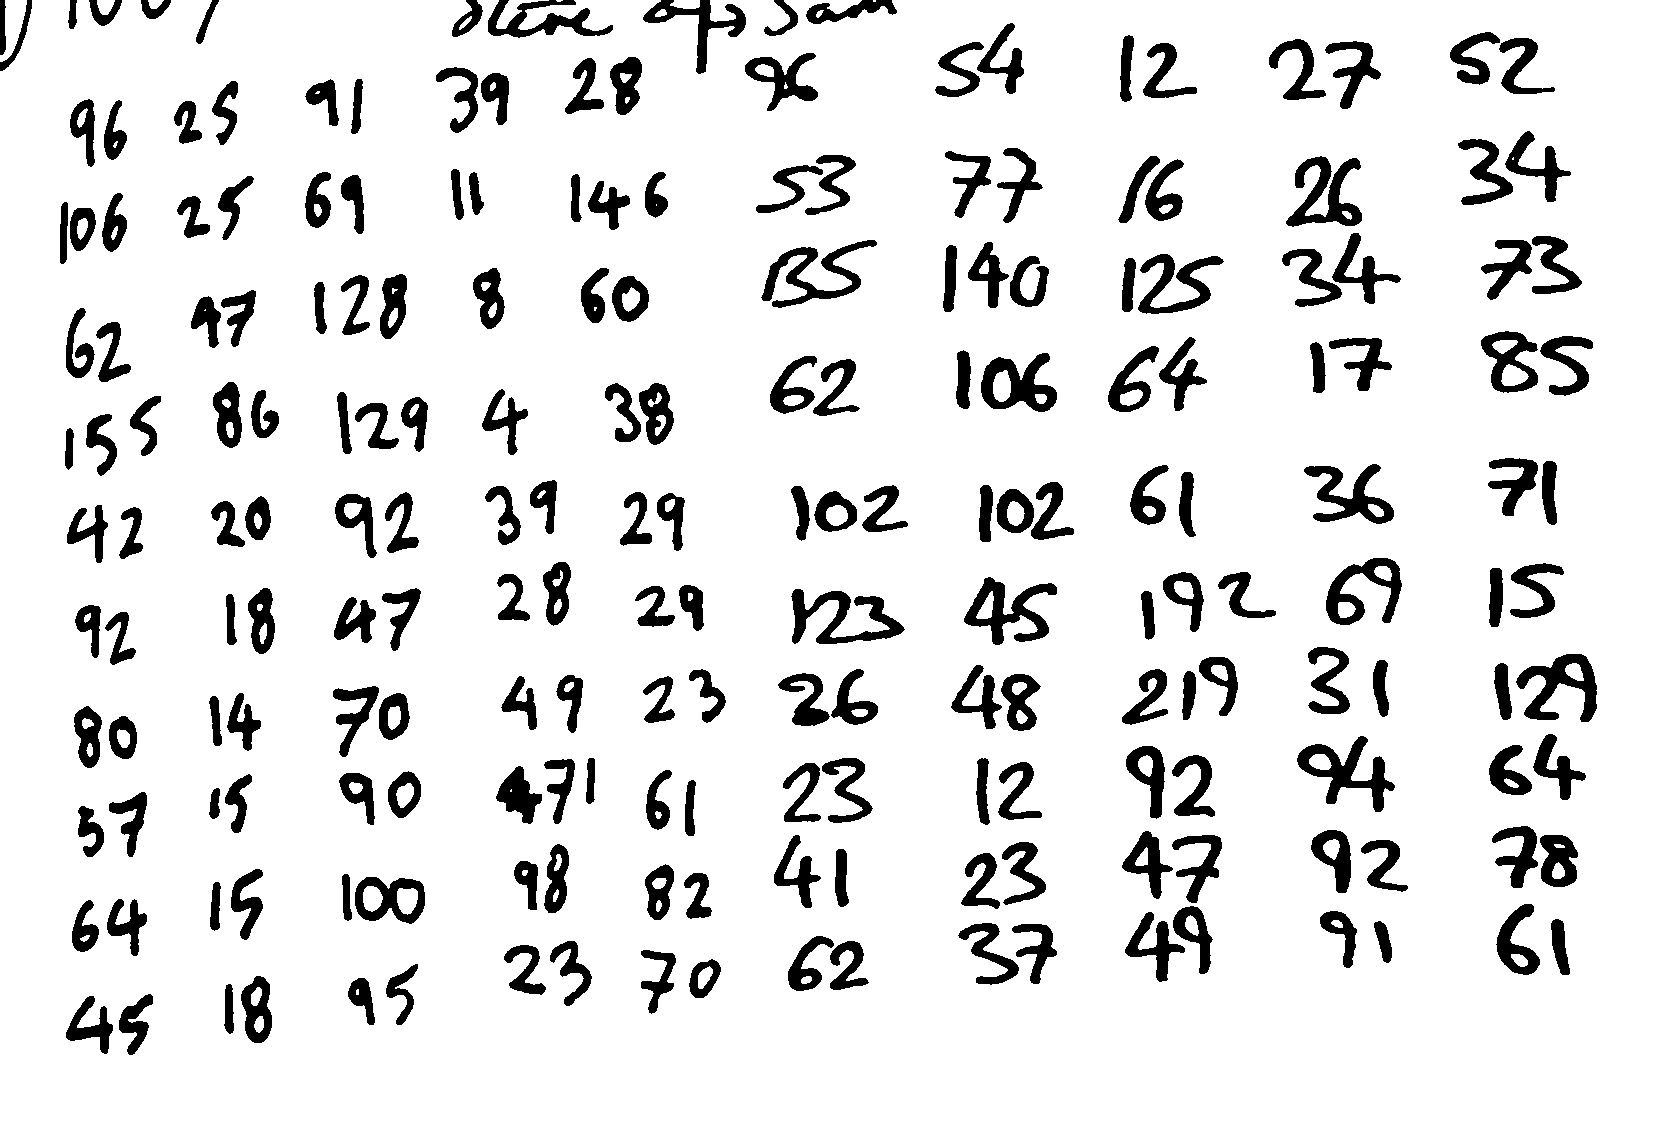 96 25 91 39 28 96 54 12 27 52
106 25 69 11 146 53 77 16 26 34
62 97 128 8 60 135 140 125 34 73
155 86 129 4 38 62 106 64 17 85
42 20 92 39 29 102 102 61 36 71
92 18 47 28 29 123 45 192 69 15
80 14 70 49 23 26 48 219 31 129
57 15 90 471 61 23 12 92 94 64
64 15 100 98 82 41 23 47 92 78
45 18 95 23 70 62 37 49 91 61